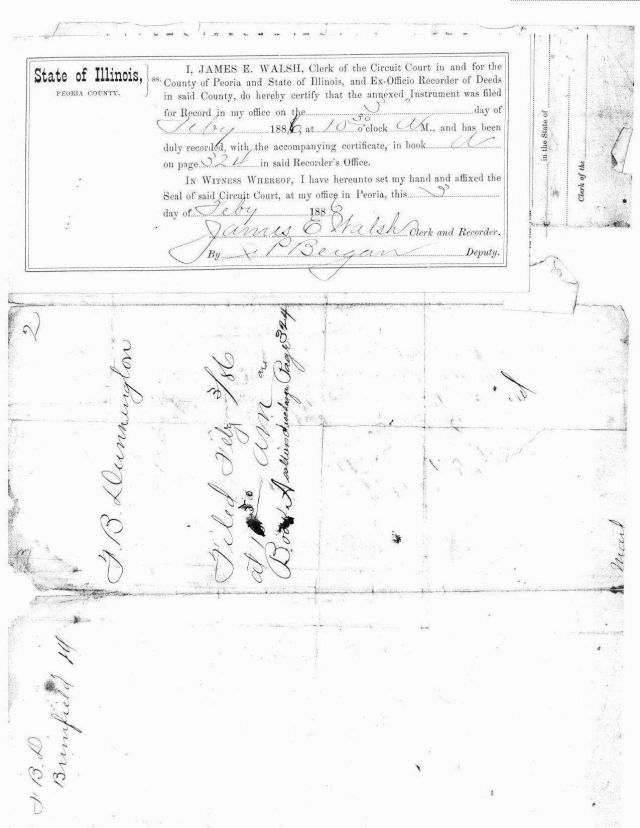 State of Illinois,
PEORIA COUNTY.
ss.
I, JAMES E. WALSH, Clerk of the Circuit Court in and for the
County of Peoria and State of Illinois, and Ex-Officio Recorder of Deeds
in said County, do hereby certify that the annexed Instrument was filed
for Record in my office on the 3 day of
Feby 1886, at 10 30 o'clock A M., and has been
duly recorded, with the accompanying certificate, in book A
on page 324 in said Recorder's Office.
IN WITNESS WHEREOF, I have hereunto set my hand and affixed the
Seal of said Circuit Court, at my office in Peoria, this 3
day of Feby 1886
James E Walsh Clerk and Recorder.
By P Bergan Deputy.
in the State of
Clerk of the
2
F. B. Dunnington
Filed Feby 3/86
at 10 30 AM
Book A soldiers discharge Page 324
F B D
Brimfield Ill